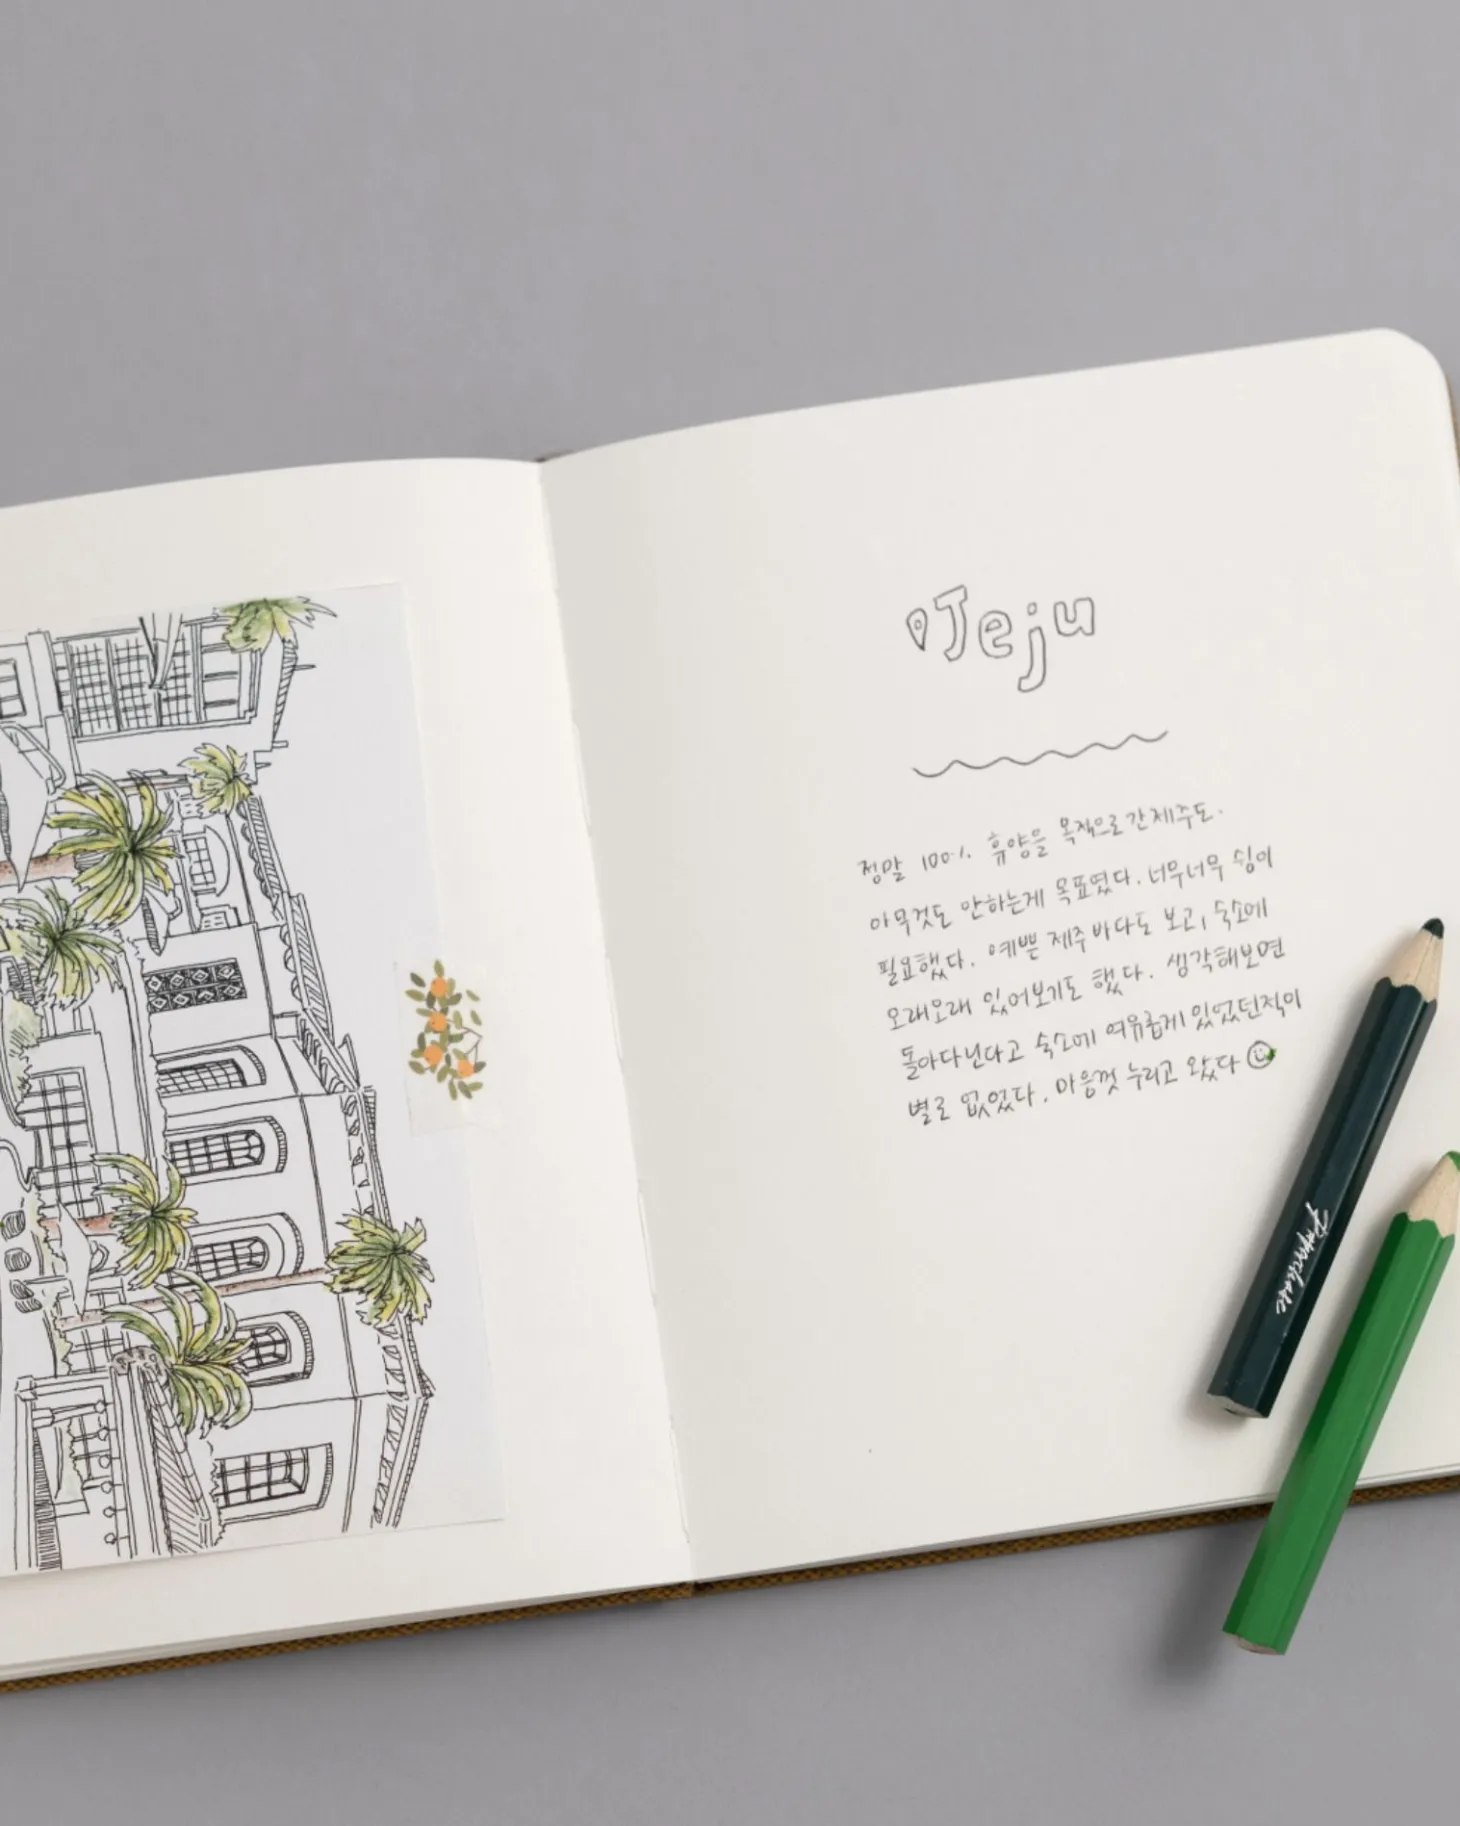 Jeju
정말 100% 휴양을 목적으로 간 제주도.
아무것도 안하는게 목표였다. 너무너무 쉼이
필요했다. 예쁜 제주 바다도 보고, 숙소에
오래오래 있어보기도 했다. 생각해보면
돌아다닌다고 숙소에 여유롭게 있었던적이
별로 없었다. 마음껏 누리고 왔다
Paperchase